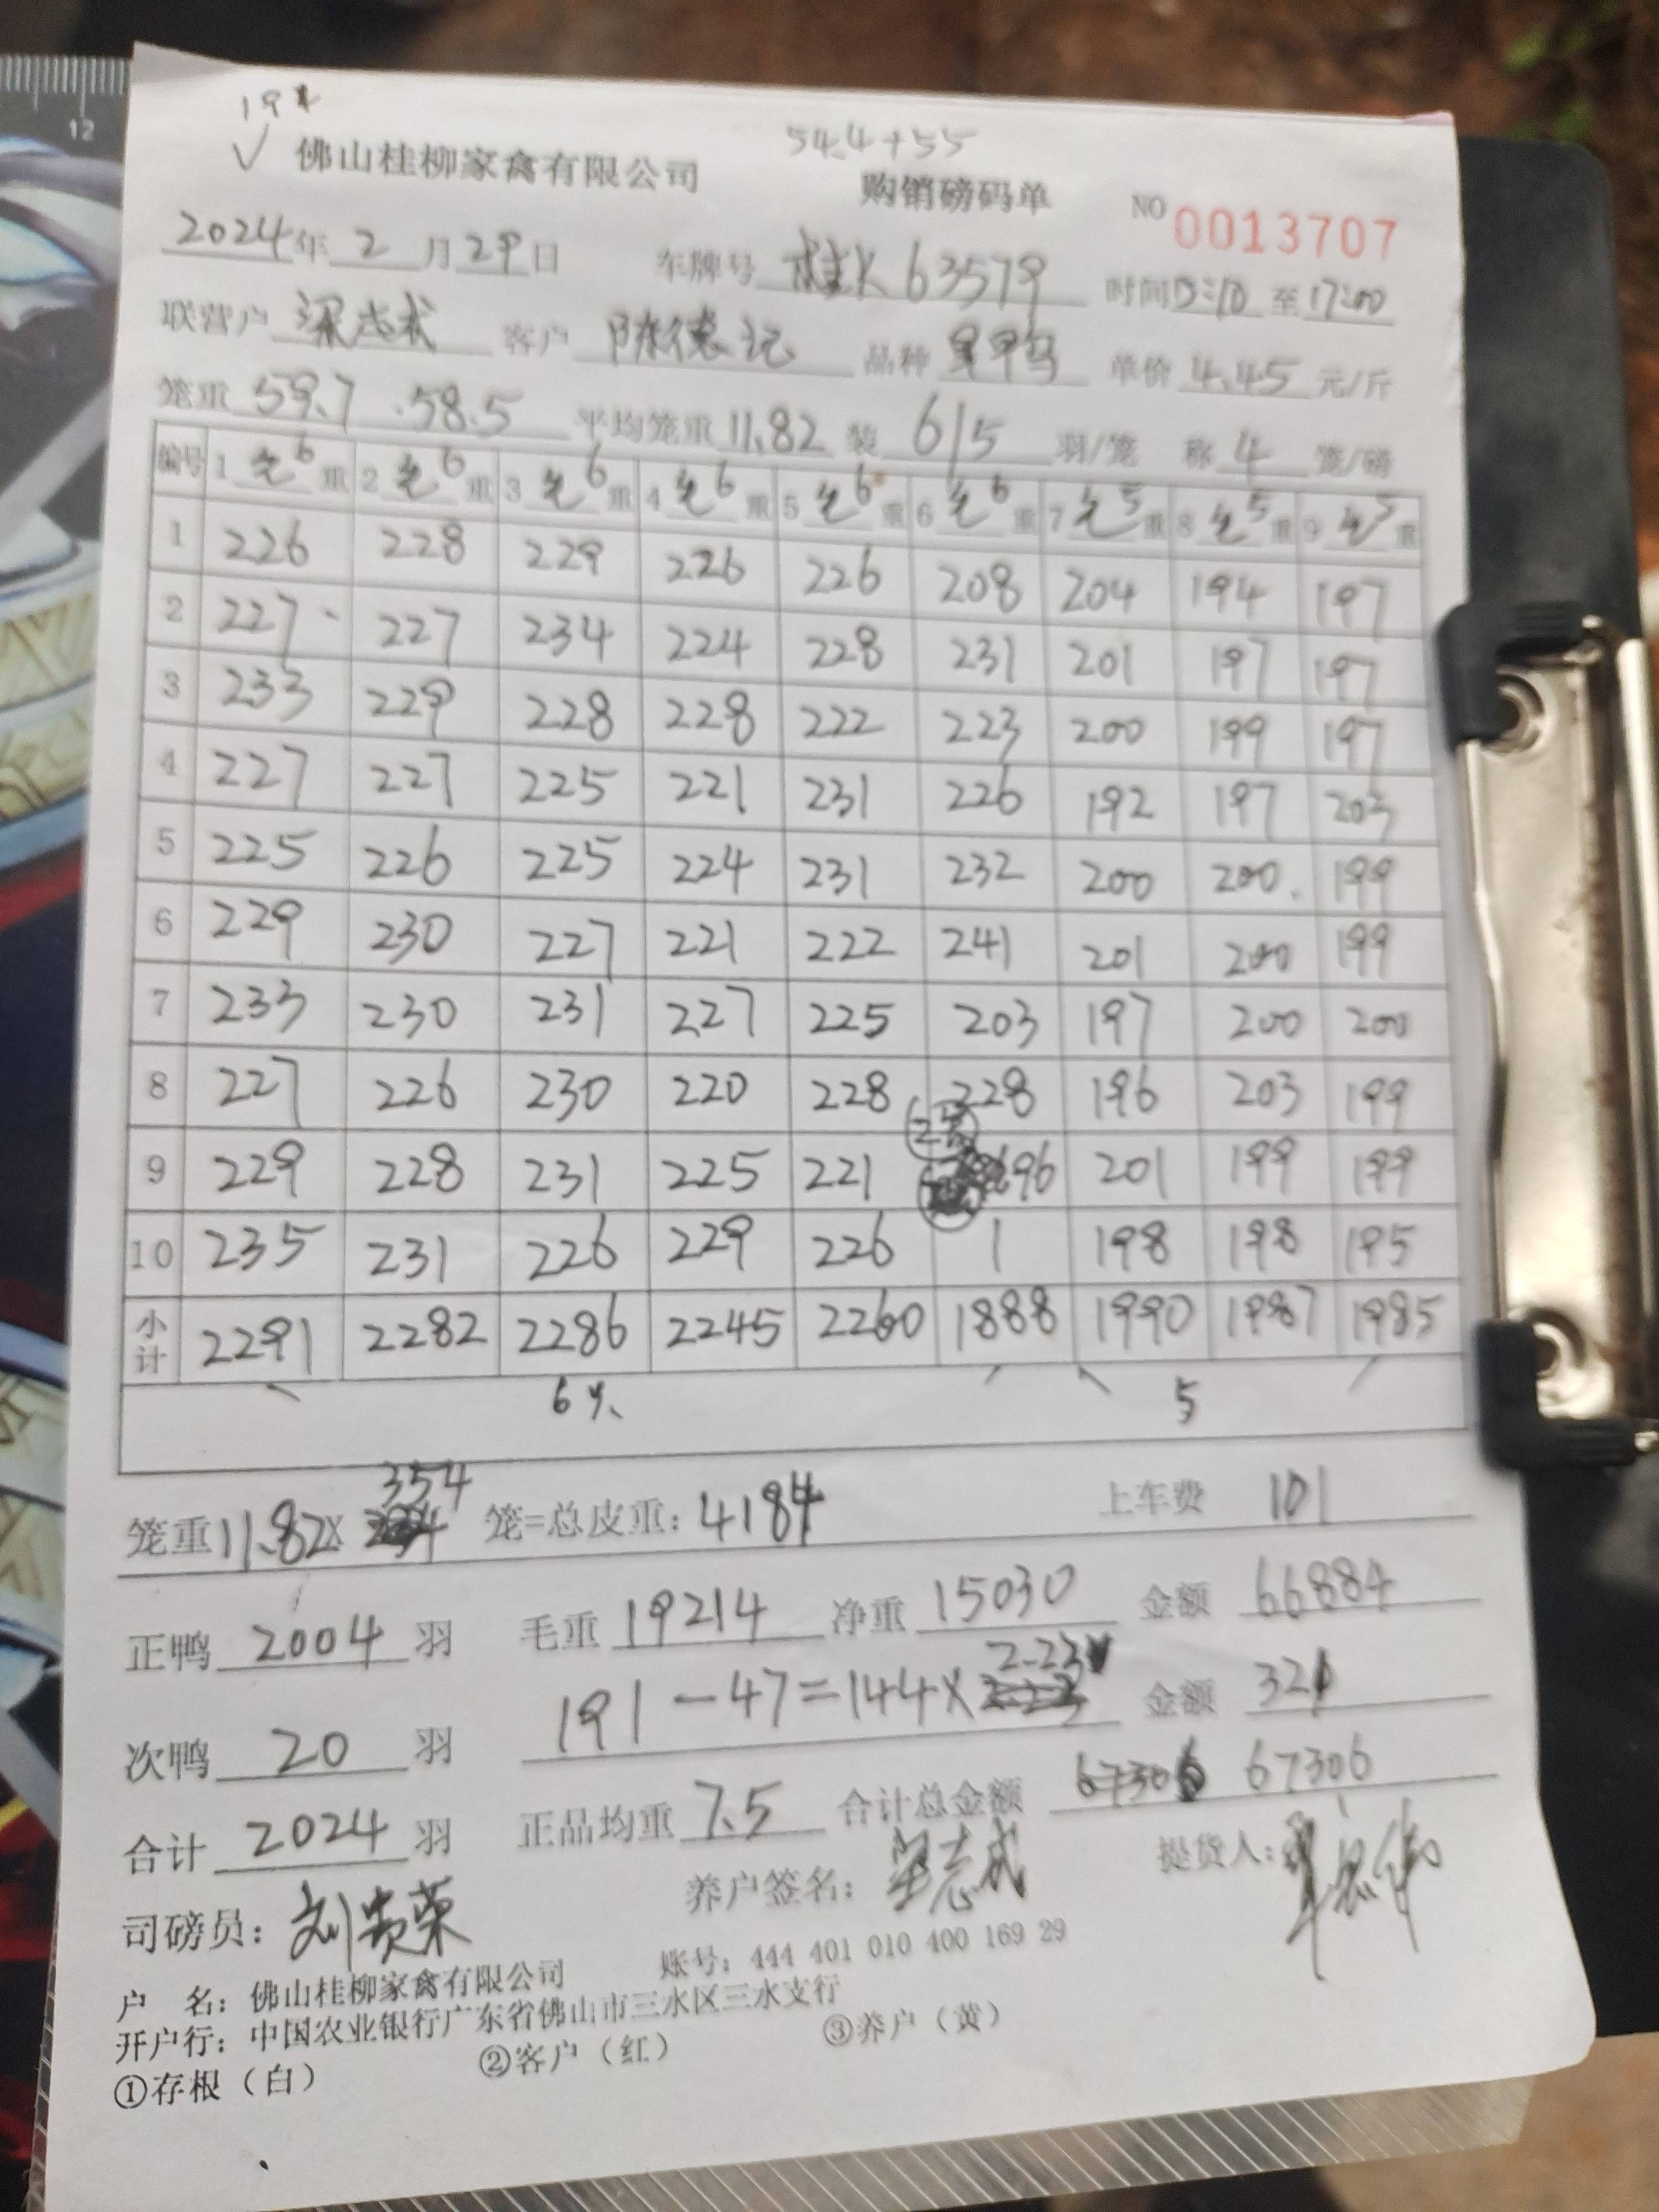 19
✓ 佛山桂柳家禽有限公司 54.4+55
购销磅码单 NO 0013707
2024年2月29日 车牌号 桂K63579 时间 至17:00
联营户 梁志武 客户 陈德记 品种 单价 4.45 元/斤
笼重 59.7 .58.5 平均笼重 11.82 装 6/5 羽/笼 称 4 笼/磅
编号 1 毛6重 2 毛6重 3 毛6重 4 毛6重 5 毛6重 6 毛6重 7 毛5重 8 毛5重 9 毛5重
1 226 228 229 226 226 208 204 194 197
2 227 227 234 224 228 231 201 197 197
3 233 229 228 228 222 223 200 199 197
4 227 227 225 221 231 226 192 197 203
5 225 226 225 224 231 232 200 200. 199
6 229 230 227 221 222 241 201 200 199
7 233 230 231 227 225 203 197 200 200
8 227 226 230 220 228 228 196 203 199
9 229 228 231 225 221 96 201 199 199
10 235 231 226 229 226 1 198 198 195
小计 2291 2282 2286 2245 2260 1888 1990 1987 1985
6 5
354
笼重 11.82× 笼=总皮重: 4184 上车费 101
正鸭 2004 羽 毛重 19214 净重 15030 金额 66884
2.23
次鸭 20 羽 191-47=144× 金额 321
合计 2024 羽 正品均重 7.5 合计总金额 67306 67306
司磅员: 刘贵荣 养户签名: 梁志武 提货人:
户 名: 佛山桂柳家禽有限公司 账号: 444 401 010 400 169 29
开户行: 中国农业银行广东省佛山市三水区三水支行
①存根(白) ②客户(红) ③养户(黄)
12